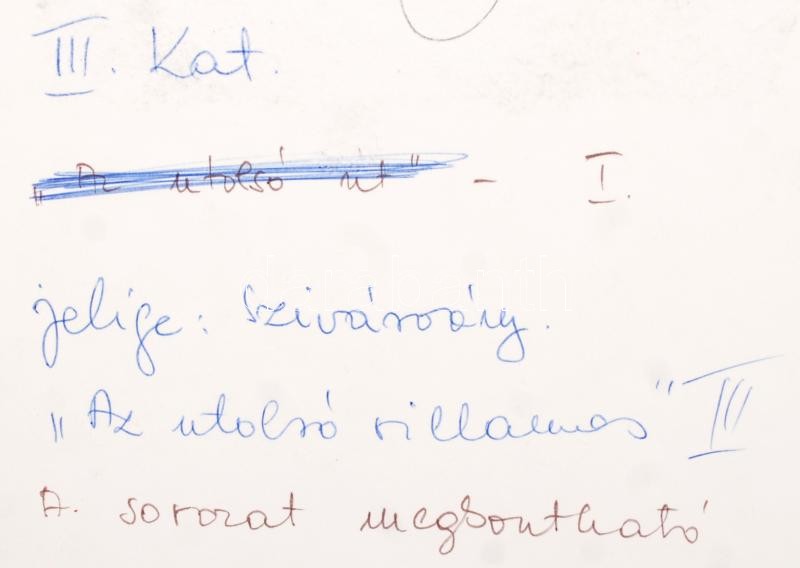 III. Kat.
„Az utolsó út" - I.
jelige: Szivárvány.
„Az utolsó villamos" III
A. sorozat megbontható